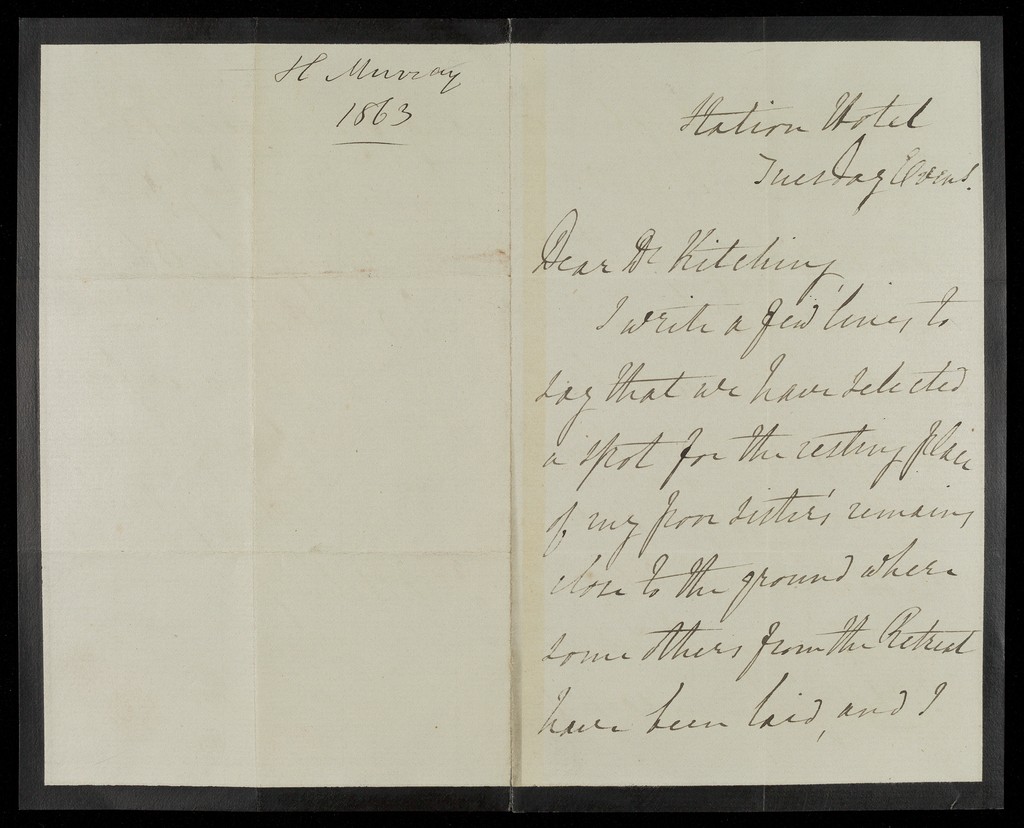 H Murray
1863
Station Hotel
Tuesday Eveng.
Dear Dr Kitching,
I write a few lines to
say that we have selected
a spot for the resting place
of my poor sister's remains
close to the ground where
some others from the Retreat
have been laid, and I